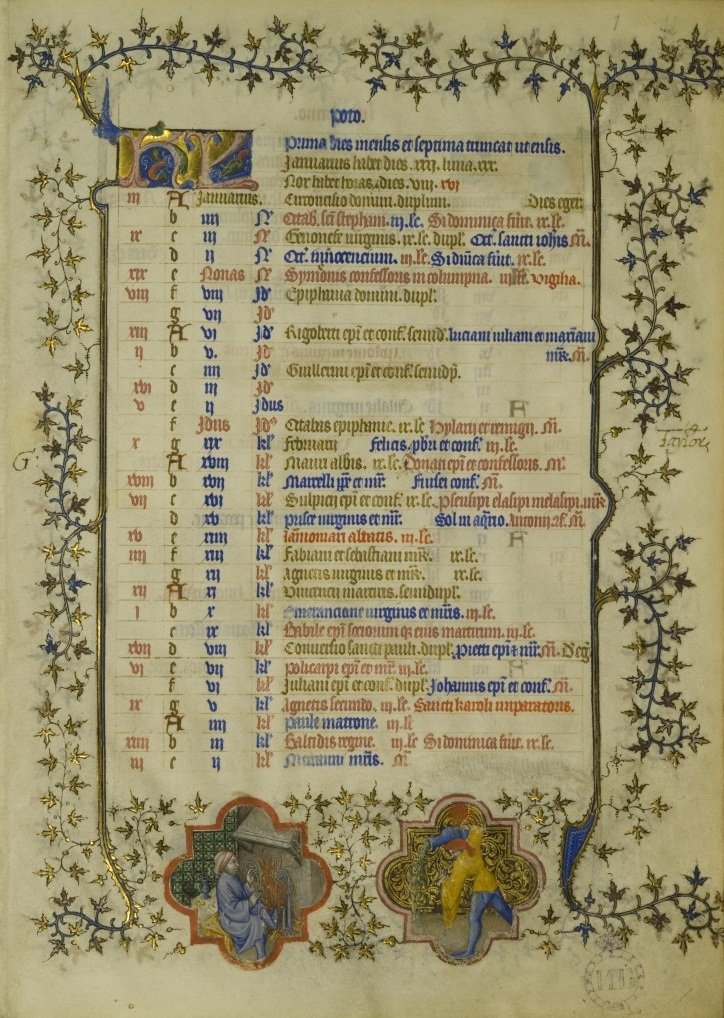 1
Poto.
KL Prima dies mensis et septima truncat ut ensis.
Januarius habet dies .xxxi. luna .xxx.
Nox habet horas. dies. viii. xvi
iii A Januarius. Circoncisio domini. duplum. Dies eger.
b iiii N Octab. sci stephani. iii. lc. Si dominica fuit. ix. lc.
xi c iii N Genovefe virginis. ix. lc. dupl. Oct. sancti iohis M.
d ii N Oct. innocencium. iii. lc. Si dnica fuit. ix. lc.
xix e Nonas N Symonis confessoris in columpna. Vigilia.
viii f viii Id Epiphania domini. dupl.
g vii Id
xvi A vi Id Rigoberti epi et conf. semid. luciani iuliani et
ii b v. Id mr. M.
c iiii Id Guillermi epi et conf. semidp.
xvi d iii Id
v e ii Idus
f Idus Id Octabas epiphanie. ix. lc Hylarii et remigii. M.
x g xix kl februarii Felicis. pbri et conf. iii. lc.
A xviii kl Mauri abbis. ix. lc. Donati epi et confessoris. M.
xviii b xvii kl Marcelli pp et mr. Fursei conf. M.
vii c xvi kl Sulpicii epi et conf. ix. lc. Pseusipi elasipi melasipi. mr
d xv kl Prisce virginis et mr. Sol in aqrio. M.
xv e xiiii kl iii. lc.
iiii f xiii kl Fabiani et sebastiani mr. ix. lc.
g xii kl Agnetis virginis et mr. ix. lc.
xii A xi kl Vincencii martiris. semidupl.
i b x kl Emeranciane virginis et mris. iii. lc.
c ix kl Babile epi sociorum q eius martirum. iii. lc.
xvii d viii kl Conversio sancti pauli. dupl. Preiecti epi z mr. M. D eg
vi e vii kl Policarpi epi et mr. iii. lc.
f vi kl Juliani epi et conf. dupl. Johannis epi et conf. M.
ix g v kl Agnetis secundo. iii. lc. Sancti karoli imparatoris.
A iiii kl Paule matrone. iii. lc
xiiii b iii kl Baltidis regine. iii. lc Si dominica fuit. ix. lc.
iii c ii kl Metranni mris. M